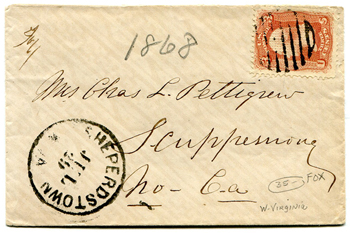 1868
Mrs Chas L. Pettigrew
Scuppernong
No-Ca
SHEPERDSTOWN
JUL
35-
FOX
W-Virginia